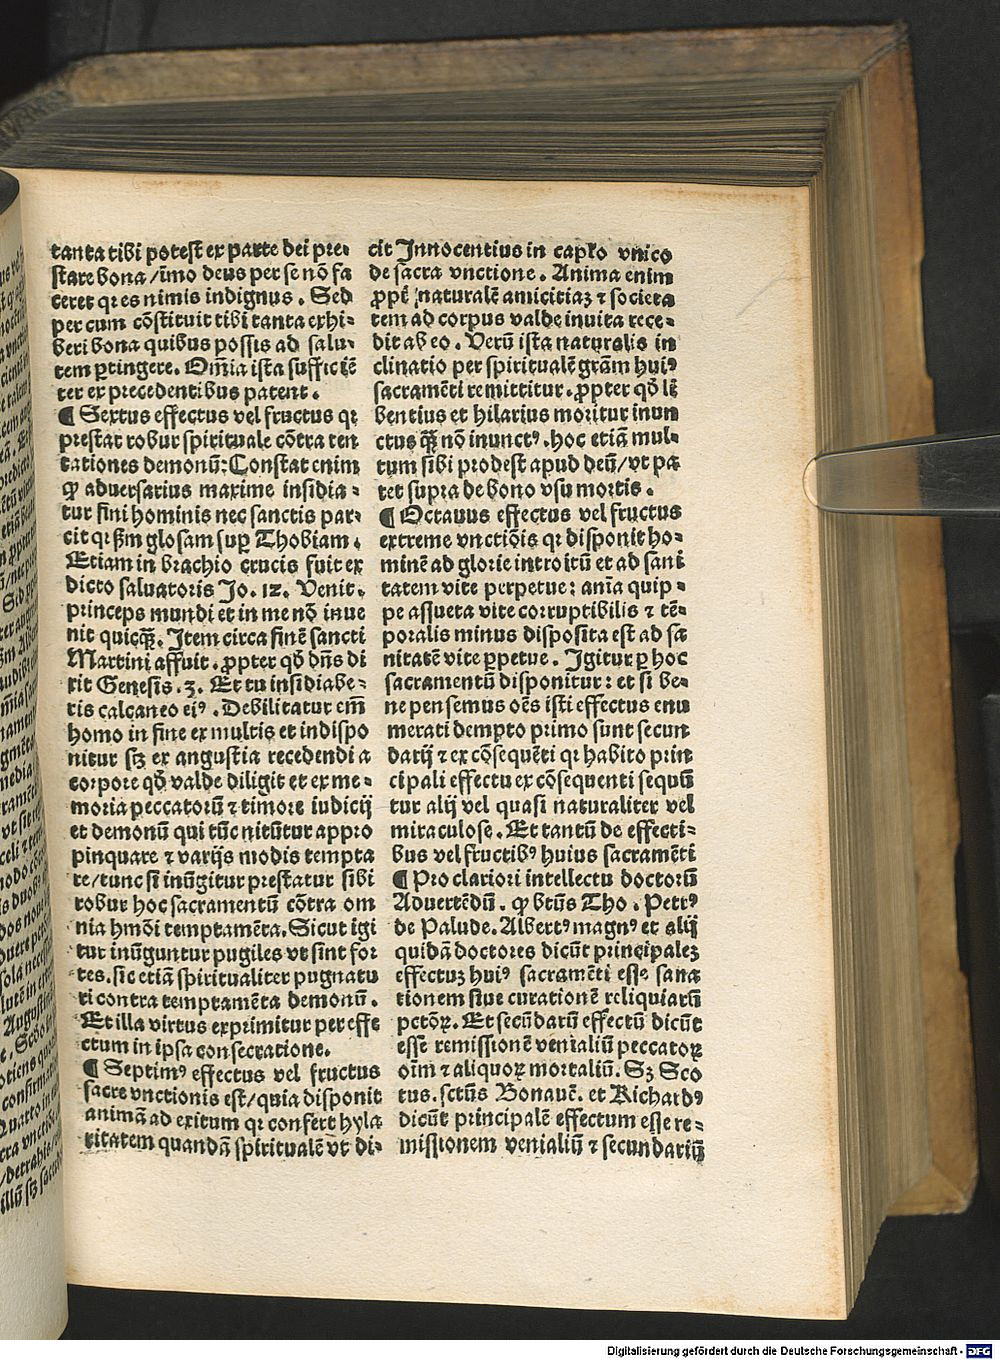 tanta tibi potest ex parte dei pre-
stare bona /īmo deus per se nō fa
ceret qr es nimis indignus. Sed
per cum cōstituit tibi tanta exhi-
beri bona quibus possis ad salu-
tem pertingere. Om̄ia ista sufficiē
ter ex precedentibus patent.
¶ Sextus effectus vel fructus qr
prestat robur spirituale cōtra ten
tationes demonū: Constat enim
ꝙ aduersarius maxime insidia-
tur fini hominis nec sanctis par-
cit qr s̄m glosam suꝑ Thobiam.
Etiam in brachio crucis fuit ex
dicto saluatoris Jo. 12. Venit.
princeps mundi et in me nō inue
nit quicqꝫ. Item circa finē sancti
Martini affuit. ꝓpter qd̄ dn̄s di
xit Genesis .3. Et tu insidiabe-
ris calcaneo eiꝰ. Debilitatur em̄
homo in fine ex multis et indispo
nitur sꝫ ex angustia recedendi a
corpore qd̄ valde diligit et ex me-
moria peccatorū ⁊ timore iudicij
et demonū qui tūc nitūtur appro
pinquare ⁊ varijs modis tempta
re/tunc si inūgitur prestatur sibi
robur hoc sacramentū cōtra om
nia hmōi temptamēta. Sicut igi
tur inūguntur pugiles vt sint for
tes. sic etiā spiritualiter pugnatu
ri contra temptamēta demonū.
Et illa virtus exprimitur per effe
ctum in ipsa consecratione.
¶ Septimꝰ effectus vel fructus
sacre vnctionis est/quia disponit
animā ad exitum qr confert hyla
ritatem quandā spiritualē vt di-
cit Innocentius in capľo vnico
de sacra vnctione. Anima enim
ꝓpť naturalē amicitiaꝫ ⁊ societa
tem ad corpus valde inuita rece-
dit ab eo. Verū ista naturalis in
clinatio per spiritualē grām huiꝰ
sacramēti remittitur. ꝓpter qd̄ li
bentius et hilarius moritur inun
ctus qꝫ nō inunctꝰ. hoc etiā mul-
tum sibi prodest apud deū/vt pa
tet supra de bono vsu mortis.
¶ Octauus effectus vel fructus
extreme vnctiōis qr disponit ho-
minē ad glorie introitū et ad sani
tatem vite perpetue: anīa quip-
pe assueta vite corruptibilis ⁊ tē-
poralis minus disposita est ad sa
nitatē vite ꝑpetue. Igitur ꝑ hoc
sacramentū disponitur: et si be-
ne pensemus oēs isti effectus enu
merati dempto primo sunt secun
darij ⁊ ex cōsequēti qr habito prin
cipali effectu ex cōsequenti sequū
tur alij vel quasi naturaliter vel
miraculose. Et tantū de effecti-
bus vel fructibꝰ huius sacramēti
¶ Pro clariori intellectu doctorū
Aduertēdū. ꝙ btūs Tho. Petrꝰ
de Palude. Albertꝰ magnꝰ et alij
quidā doctores dicūt principalez
effectuꝫ huiꝰ sacramēti esse sana
tionem siue curationē reliquiarū
pctōꝝ. Et secūdarū effectū dicūt
esse remissionē venialiū peccatoꝝ
oīm ⁊ aliquoꝝ mortaliū. Sꝫ Sco
tus. sctūs Bonauē. et Richardꝰ
dicūt principalē effectum esse re-
missionem venialiū ⁊ secundariū
Digitalisierung gefördert durch die Deutsche Forschungsgemeinschaft - DFG